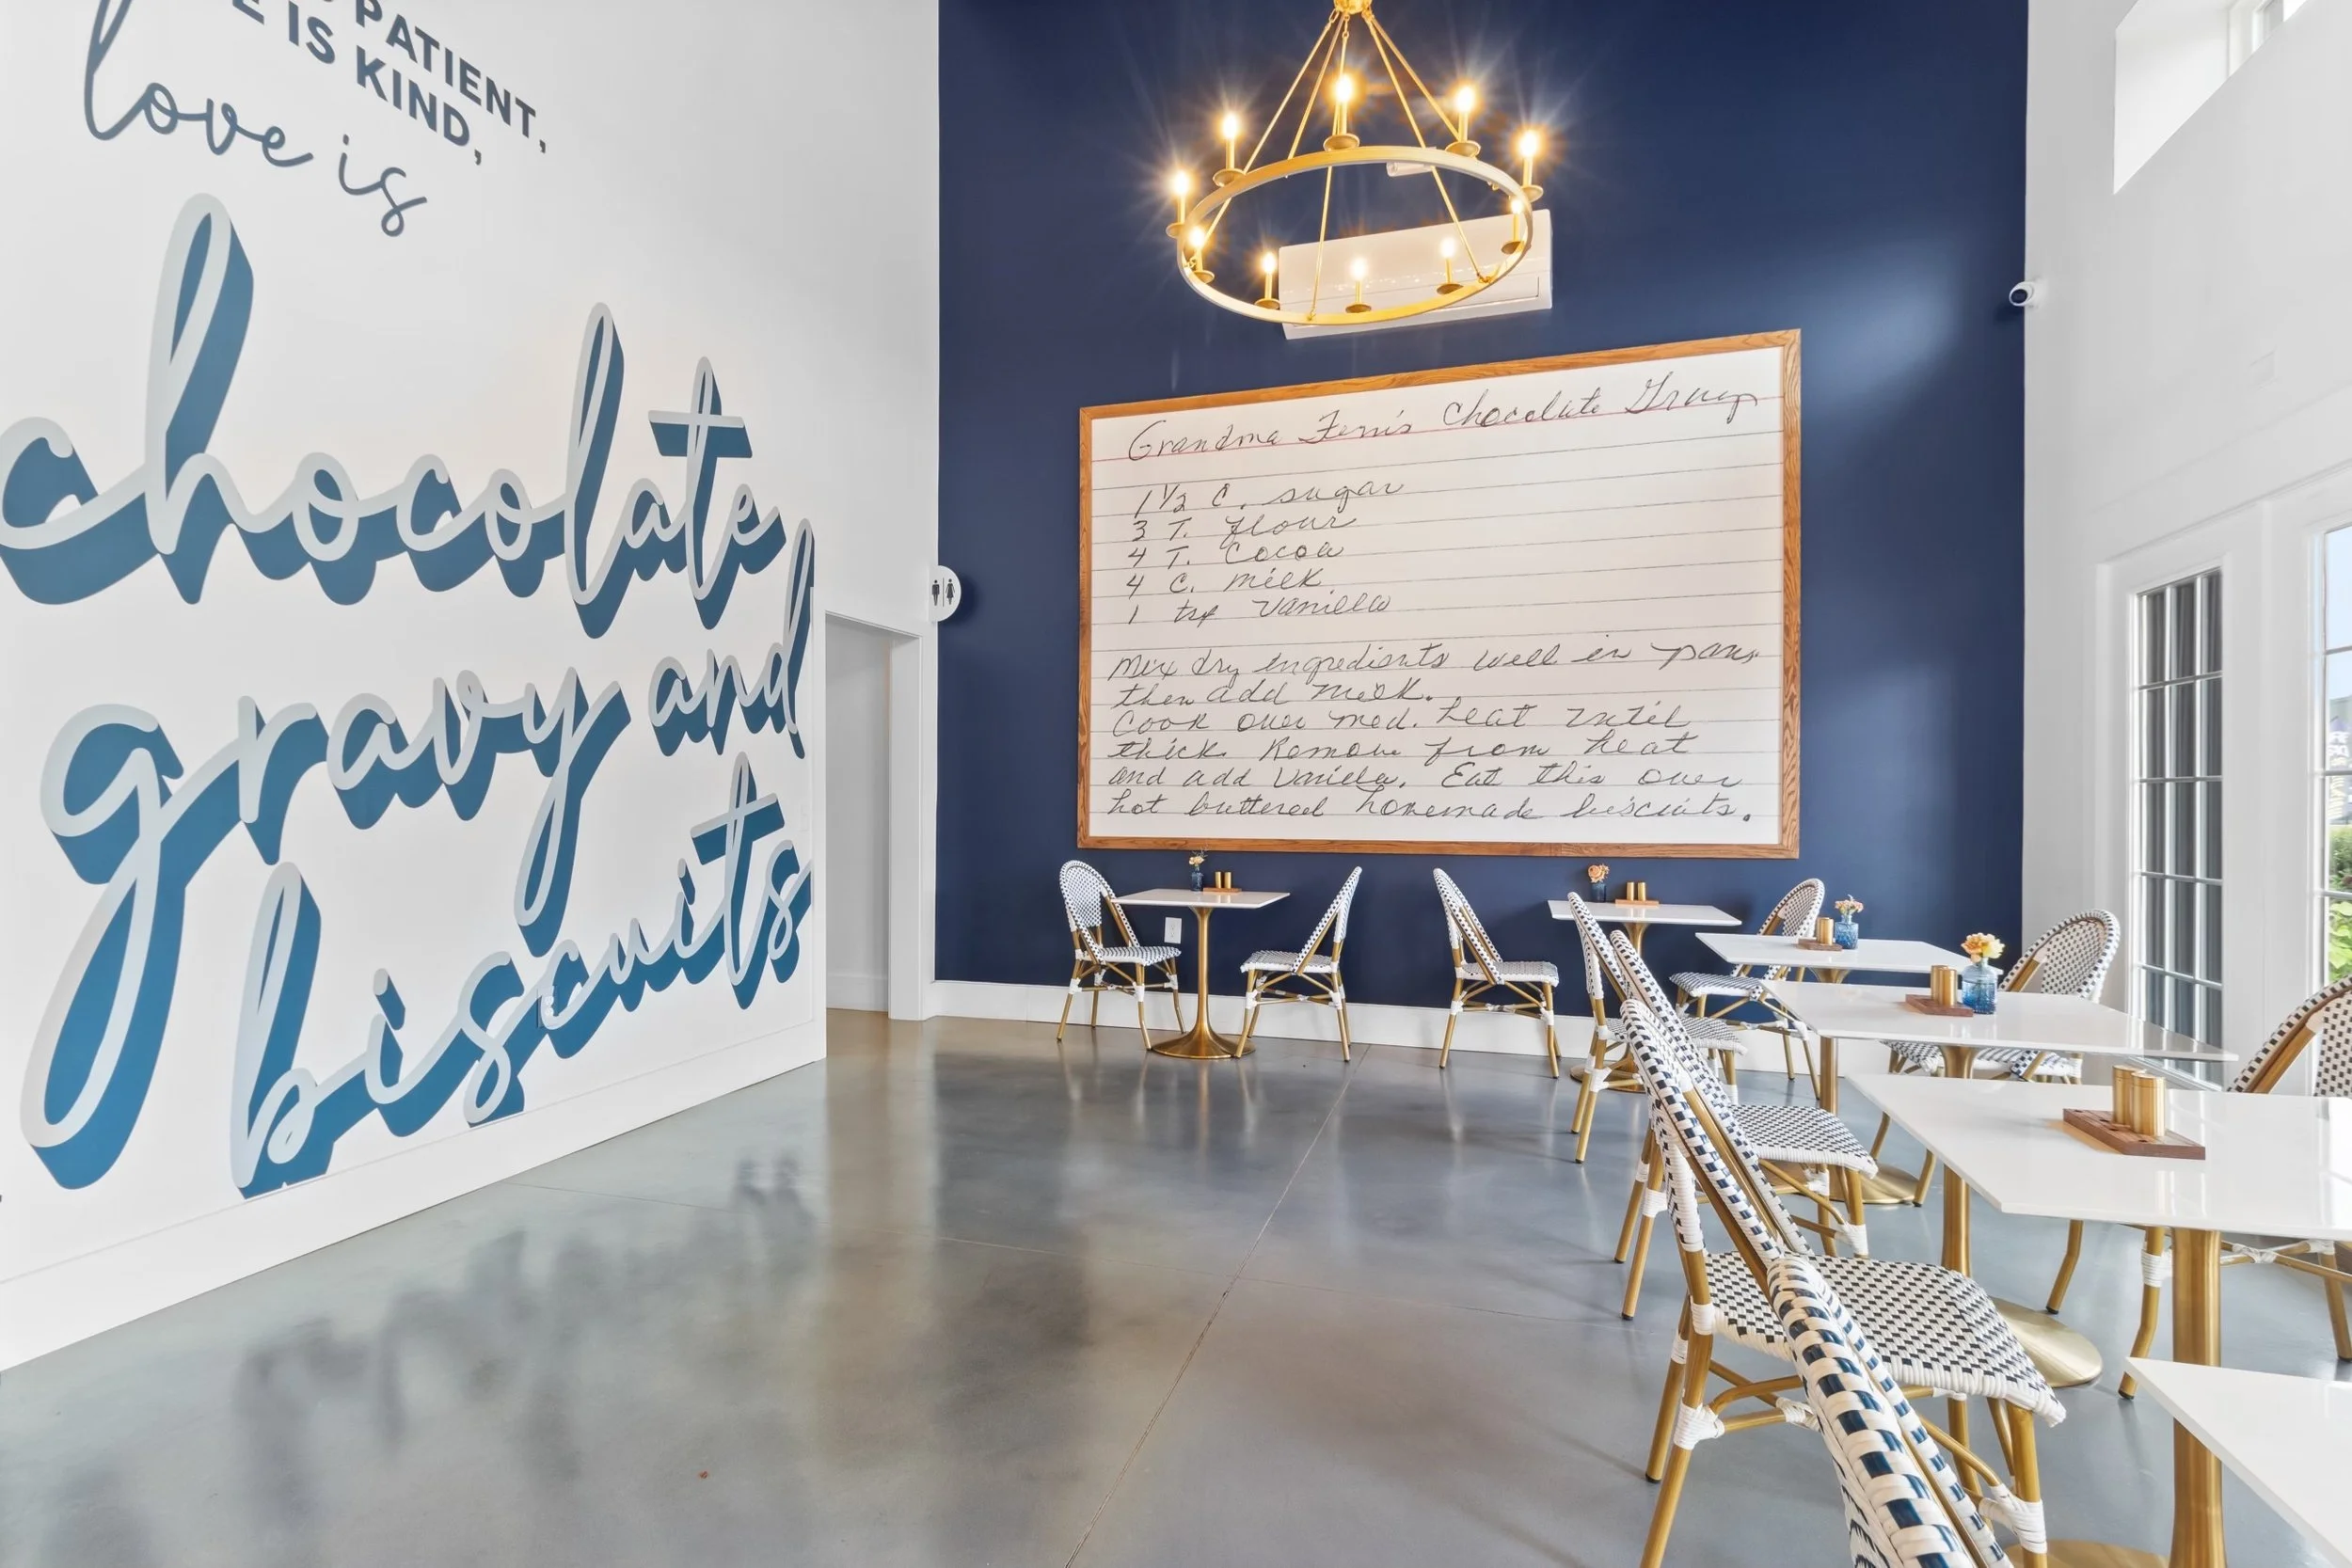 PATIENT,
IS KIND,
love is
chocolate
gravy and
biscuits
Grandma Ferri's Chocolate Gravy
1 1/2 C. sugar
3 T. flour
4 T. Cocoa
4 C. milk
1 tsp vanilla
Mix dry ingredients well in pan,
then add milk.
Cook over med. heat until
thick. Remove from heat
and add vanilla. Eat this over
hot buttered homemade biscuits.